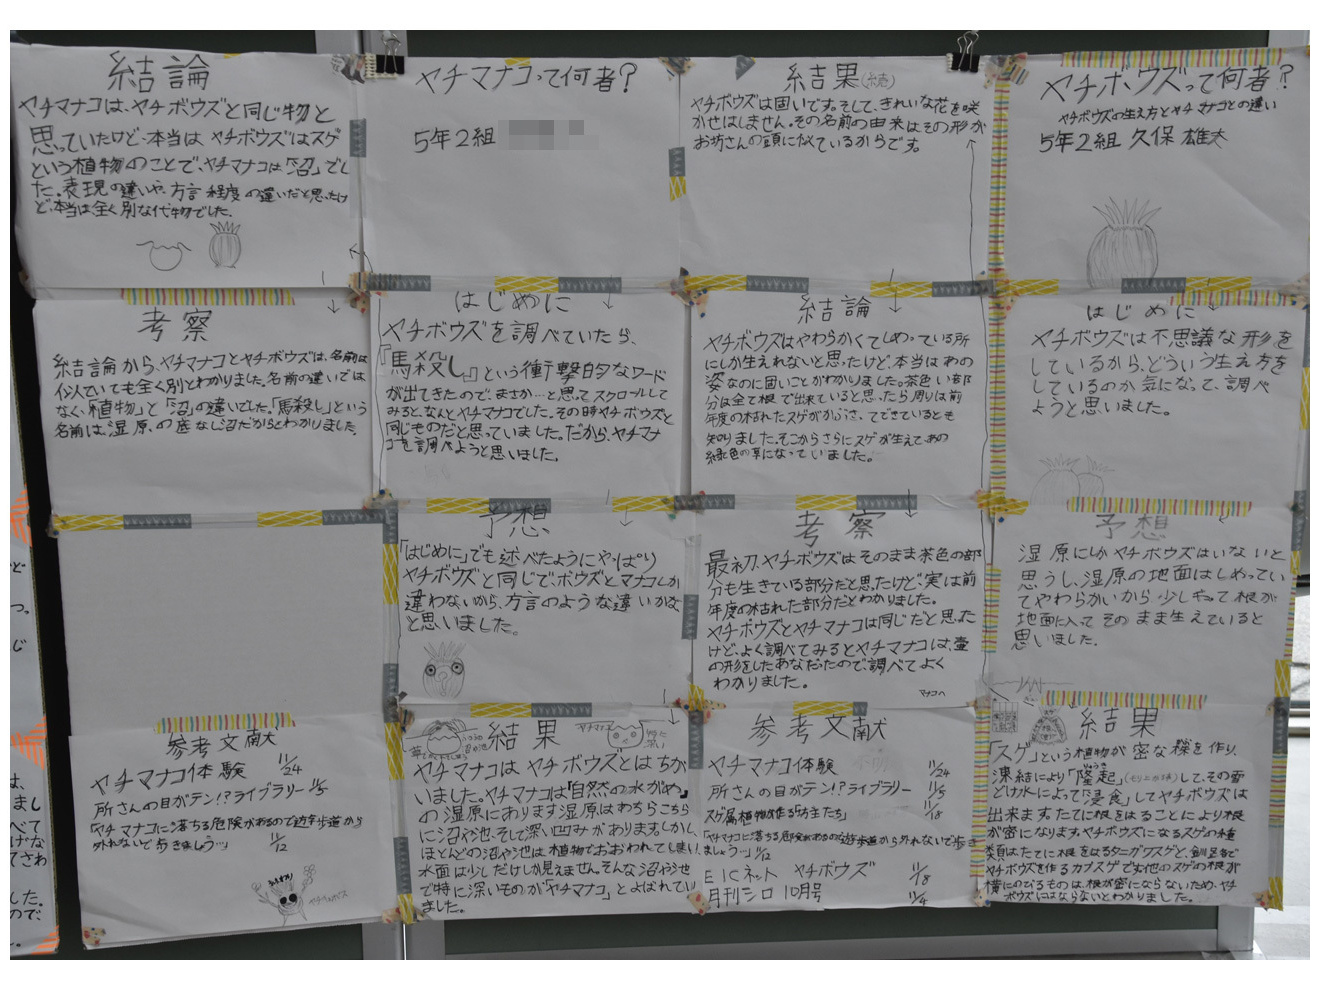 ヤチボウズって何者?
ヤチボウズの生え方とヤチマナコとの違い
5年2組 久保 雄大
はじめに
ヤチボウズは不思議な形を
しているから、どういう生え方を
しているのか気になって、調べ
ようと思いました。
予想
湿原にしかヤチボウズはいないと
思うし、湿原の地面はしめってい
てやわらかいから少しもって根が
地面に入って そのまま生えていると
思いました。
結果
「スゲ」という植物が密な株を作り、
凍結により「隆起」(もり上がり)して、その雪
どけ水によって「浸食」してヤチボウズは
出来ます。たてに根をはることにより根
が密になります。ヤチボウズになるスゲの種
類はたてに根をはるタニガワスゲと、釧路で
ヤチボウズを作るカブスゲです。他のスゲの根が
横にのびるものは、根が密にならないため、ヤチ
ボウズにはならないとわかりました。
結果(続)
ヤチボウズは固いです。そして、きれいな花を咲
かせはしません。その名前の由来はその形が
お坊さんの頭ににているからです。
結論
ヤチボウズはやわらかくてしめっている所
にしか生えれないと思ったけど、本当はあの
姿なのに固いことがわかりました。茶色い部
分は全て根で出来ていると思ったら周りは前
年度の枯れたスゲがかぶさってできているとも
知りました。そこからさらにスゲが生えて、あの
緑色の草になっていました。
考察
最初、ヤチボウズはそのまま茶色の部
分も生きている部分だと思ったけど、実は前
年度の枯れた部分だとわかりました。
ヤチボウズとヤチマナコは同じだと思った
けど、よく調べてみるとヤチマナコは、壷
の形をしたあなだったので調べてよく
わかりました。
マナコへ
参考文献
ヤチマナコ体験 11/24
所さんの目がテン!?ライブラリー 11/5
スゲ属植物が作る「坊主たち」 11/18
「ヤチマナコに落ちる危険があるので遊歩道から外れないで歩き
ましょうーッ」11/12
EICネット ヤチボウズ 11/8
月刊シロ 10月号 11/4
ヤチマナコって何者?
5年2組
はじめに
ヤチボウズを調べていたら、
『馬殺し』という衝撃的なワード
が出てきたので、まさか…と思ってスクロールして
みると、なんとヤチマナコでした。その時ヤチボウズと
同じものだと思っていました。だから、ヤチマナ
コを調べようと思いました。
予想
「はじめに」でも述べたようにやっぱり
ヤチボウズと同じで、ボウズとマナコしか
違わないから、方言のような違いかな
と思いました。
結果
ヤチマナコ
ヤチマナコはヤチボウズとはちが
いました。ヤチマナコは「自然の水がめ」
の湿原にあります。湿原はあちらこちら
に沼や池、そして深い凹みがあります。しかし、
ほとんどの沼や池は植物でおおわれてしまい、
水面は少しだけしか見えません。そんな沼や池
で特に深いものが「ヤチマナコ」とよばれてい
ました。
結論
ヤチマナコは、ヤチボウズと同じ物と
思っていたけど、本当はヤチボウズはスゲ
という植物のことで、ヤチマナコは「沼」でし
た。表現の違いや、方言程度の違いだと思ったけ
ど、本当は全く別な代物でした。
考察
結論から、ヤチマナコとヤチボウズは、名前は
似ていても全く別とわかりました。名前の違いでは
なく、「植物」と「沼」の違いでした。「馬殺し」という
名前は、湿原の底なし沼だからとわかりました。
参考文献
ヤチマナコ体験 11/24
所さんの目がテン!?ライブラリー 11/5
「ヤチマナコに落ちる危険があるので遊歩道から
外れないで歩きましょうーッ」 11/12